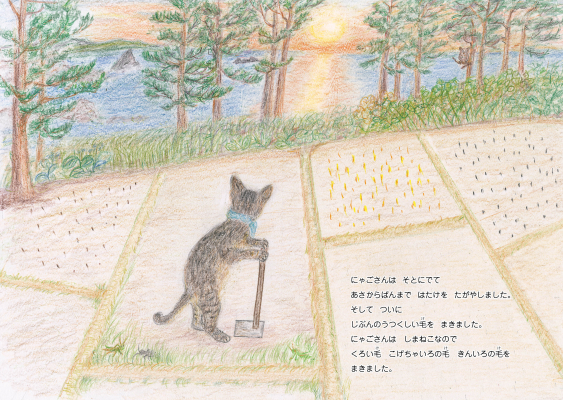 にゃごさんは　そとにでて
あさからばんまで　はたけを　たがやしました。
そして　ついに
じぶんのうつくしい毛を　まきました。
にゃごさんは　しまねこなので
くろい毛　こげちゃいろの毛　きんいろの毛を
まきました。